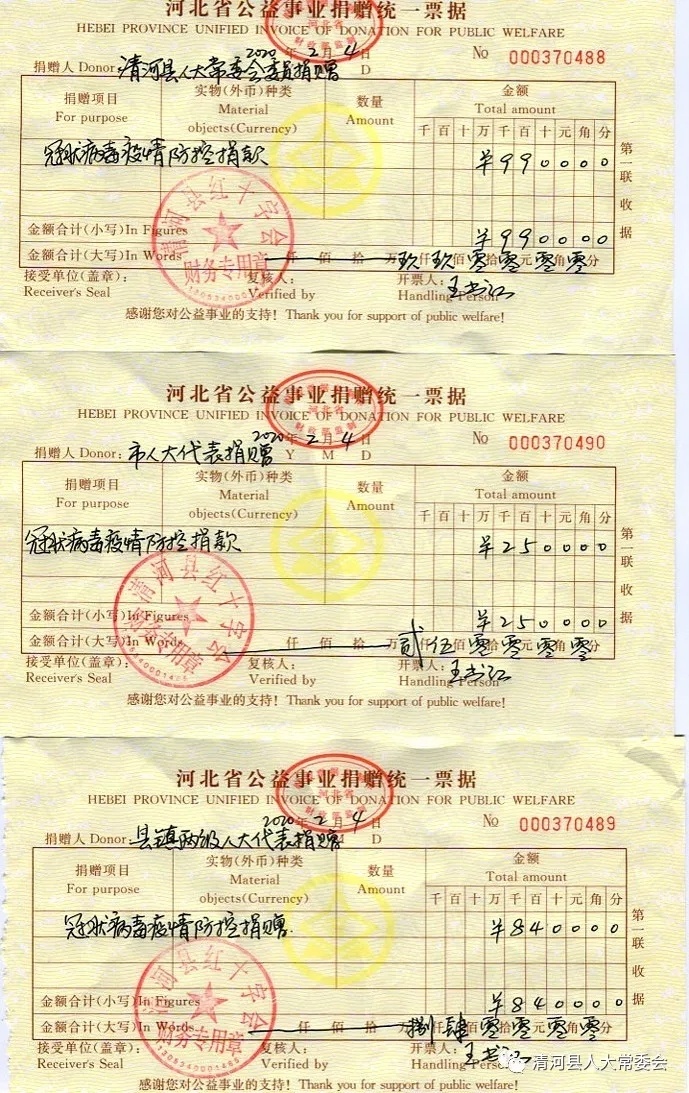 河北省公益事业捐赠统一票据
HEBEI PROVINCE UNIFIED INVOICE OF DONATION FOR PUBLIC WELFARE
2020年2月4日
No 000370488
捐赠人 Donor: 清河县人大常委会委员捐赠
M D
捐赠项目 实物(外币)种类 数量 金额
For purpose Material Amount Total amount
objects(Currency) 千百十万千百十元角分
冠状病毒疫情防控捐款 ¥990000
第一联 收据
金额合计(小写)In Figures ¥990000
金额合计(大写)In Words 仟佰拾万玖仟玖佰零拾零元零角零分
接受单位(盖章): 复核人: 开票人: 王书江
Receiver's Seal Verified by Handling Person
感谢您对公益事业的支持! Thank you for support of public welfare!
清河县红十字会
财务专用章
河北省公益事业捐赠统一票据
HEBEI PROVINCE UNIFIED INVOICE OF DONATION FOR PUBLIC WELFARE
2020年2月4日
No 000370490
捐赠人 Donor: 市人大代表捐赠
Y M D
捐赠项目 实物(外币)种类 数量 金额
For purpose Material Amount Total amount
objects(Currency) 千百十万千百十元角分
冠状病毒疫情防控捐款 ¥250000
第一联 收据
金额合计(小写)In Figures ¥250000
金额合计(大写)In Words 仟佰拾万贰仟伍佰零拾零元零角零分
接受单位(盖章): 复核人: 开票人: 王书江
Receiver's Seal Verified by Handling Person
感谢您对公益事业的支持! Thank you for support of public welfare!
清河县红十字会
财务专用章
河北省公益事业捐赠统一票据
HEBEI PROVINCE UNIFIED INVOICE OF DONATION FOR PUBLIC WELFARE
2020年2月4日
No 000370489
捐赠人 Donor: 县镇两级人大代表捐赠
M D
捐赠项目 实物(外币)种类 数量 金额
For purpose Material Amount Total amount
objects(Currency) 千百十万千百十元角分
冠状病毒疫情防控捐赠 ¥840000
第一联 收据
金额合计(小写)In Figures ¥840000
金额合计(大写)In Words 仟佰拾万捌仟肆佰零拾零元零角零分
接受单位(盖章): 复核人: 开票人: 王书江
Receiver's Seal Verified by Handling Person
感谢您对公益事业的支持! Thank you for support of public welfare!
清河县红十字会
财务专用章
清河县人大常委会